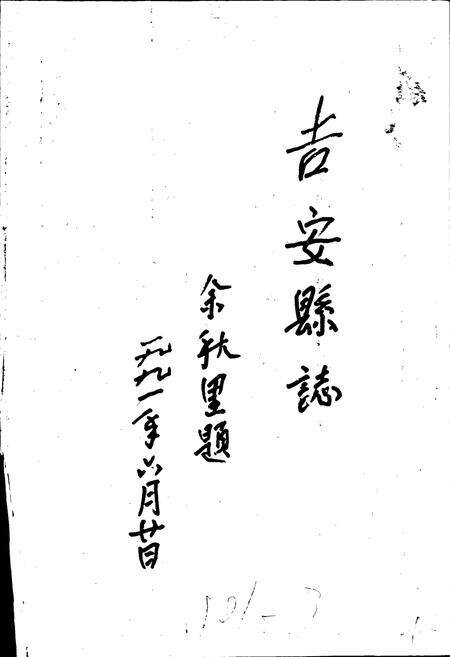 吉安縣誌
余秋里題
一九九一年六月廿日